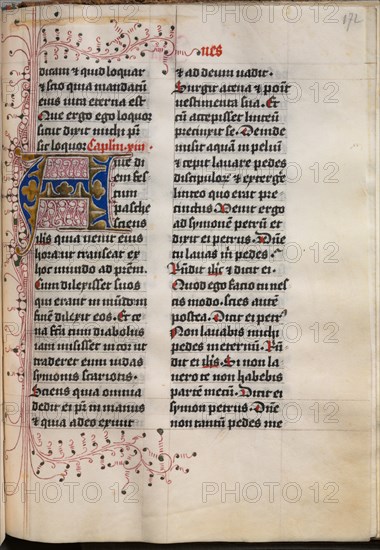 172
nes
dicam & quid loquar
& scio quia mandatū
eius vita eterna est
Que ergo ego loquor
sicut dixit michi p̄r
sic loquor Caplm̄ .xiii.
Ante di
em fes
tum
pasche
sciens
ihs̄ quia venit eius
hora ut transeat ex
hoc mundo ad p̄rem.
Cum dilexisset suos
qui erant in mūdo in
finē dilexit eos. Et ce
na fc̄a cum diabolus
iam misisset in cor ut
traderet eum iudas
symonis scariotis.
Sciens quia omnia
dedit ei pr̄ in manus
& quia a deo exiuit
& ad deum vadit.
Surgit a cena & ponit
vestimenta sua. Et
cū accepisset linteū
precinxit se. Deinde
misit aquam in peluī
& cepit lauare pedes
discipuloꝝ & extergē
linteo quo erat pre
cinctus. Venit ergo
ad symonē petrū et
dixit ei petrus. Dn̄e
tu lauas m̄ pedes.
Rn̄dit ihs̄ & dicit ei.
Quod ego facio tu nes
cis modo. scies autē
postea. Dicit ei petrꝰ
Non lauabis michi
pedes in eternū. Rn̄
dit ei ihs̄. Si non la
uero te non habebis
partē mecū. Dicit ei
symon petrus. Dn̄e
non tantū pedes me
PHOTO 12